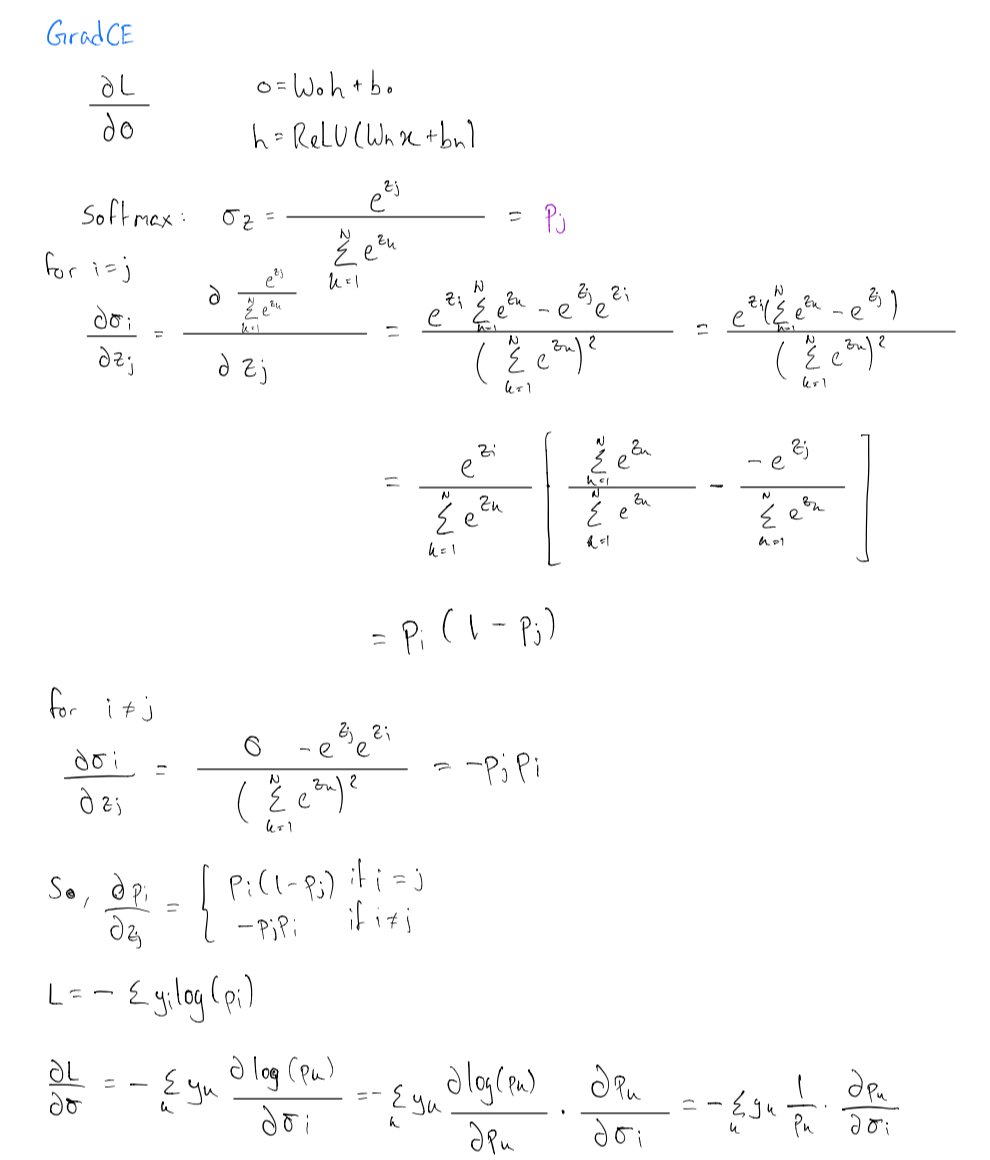 GradCE
∂L/∂o    o = W₀h + b₀
h = ReLU(Wₕx + bₕ)
Softmax: σz = e^{zj} / Σ_{k=1}^{N} e^{zk} = Pj
for i=j
∂σi/∂zj = ∂ (e^{zj} / Σ_{k=1}^{N} e^{zk}) / ∂zj = (e^{zi} Σ_{k=1}^{N} e^{zk} - e^{zj} e^{zi}) / (Σ_{k=1}^{N} e^{zk})² = e^{zi} (Σ_{k=1}^{N} e^{zk} - e^{zj}) / (Σ_{k=1}^{N} e^{zk})²
= e^{zi} / Σ_{k=1}^{N} e^{zk} [ Σ_{k=1}^{N} e^{zk} / Σ_{k=1}^{N} e^{zk} - -e^{zj} / Σ_{k=1}^{N} e^{zk} ]
= Pi (1 - Pj)
for i ≠ j
∂σi/∂zj = (0 - e^{zj} e^{zi}) / (Σ_{k=1}^{N} e^{zk})² = -Pj Pi
So, ∂pi/∂zj = { Pi(1-Pj) if i = j
-PjPi if i≠j
L = - Σ yi log(pi)
∂L/∂σ = - Σ_k yk ∂log(pk)/∂σi = - Σ_k yk ∂log(pk)/∂pk · ∂pk/∂σi = - Σ_k yk 1/pk · ∂pk/∂σi